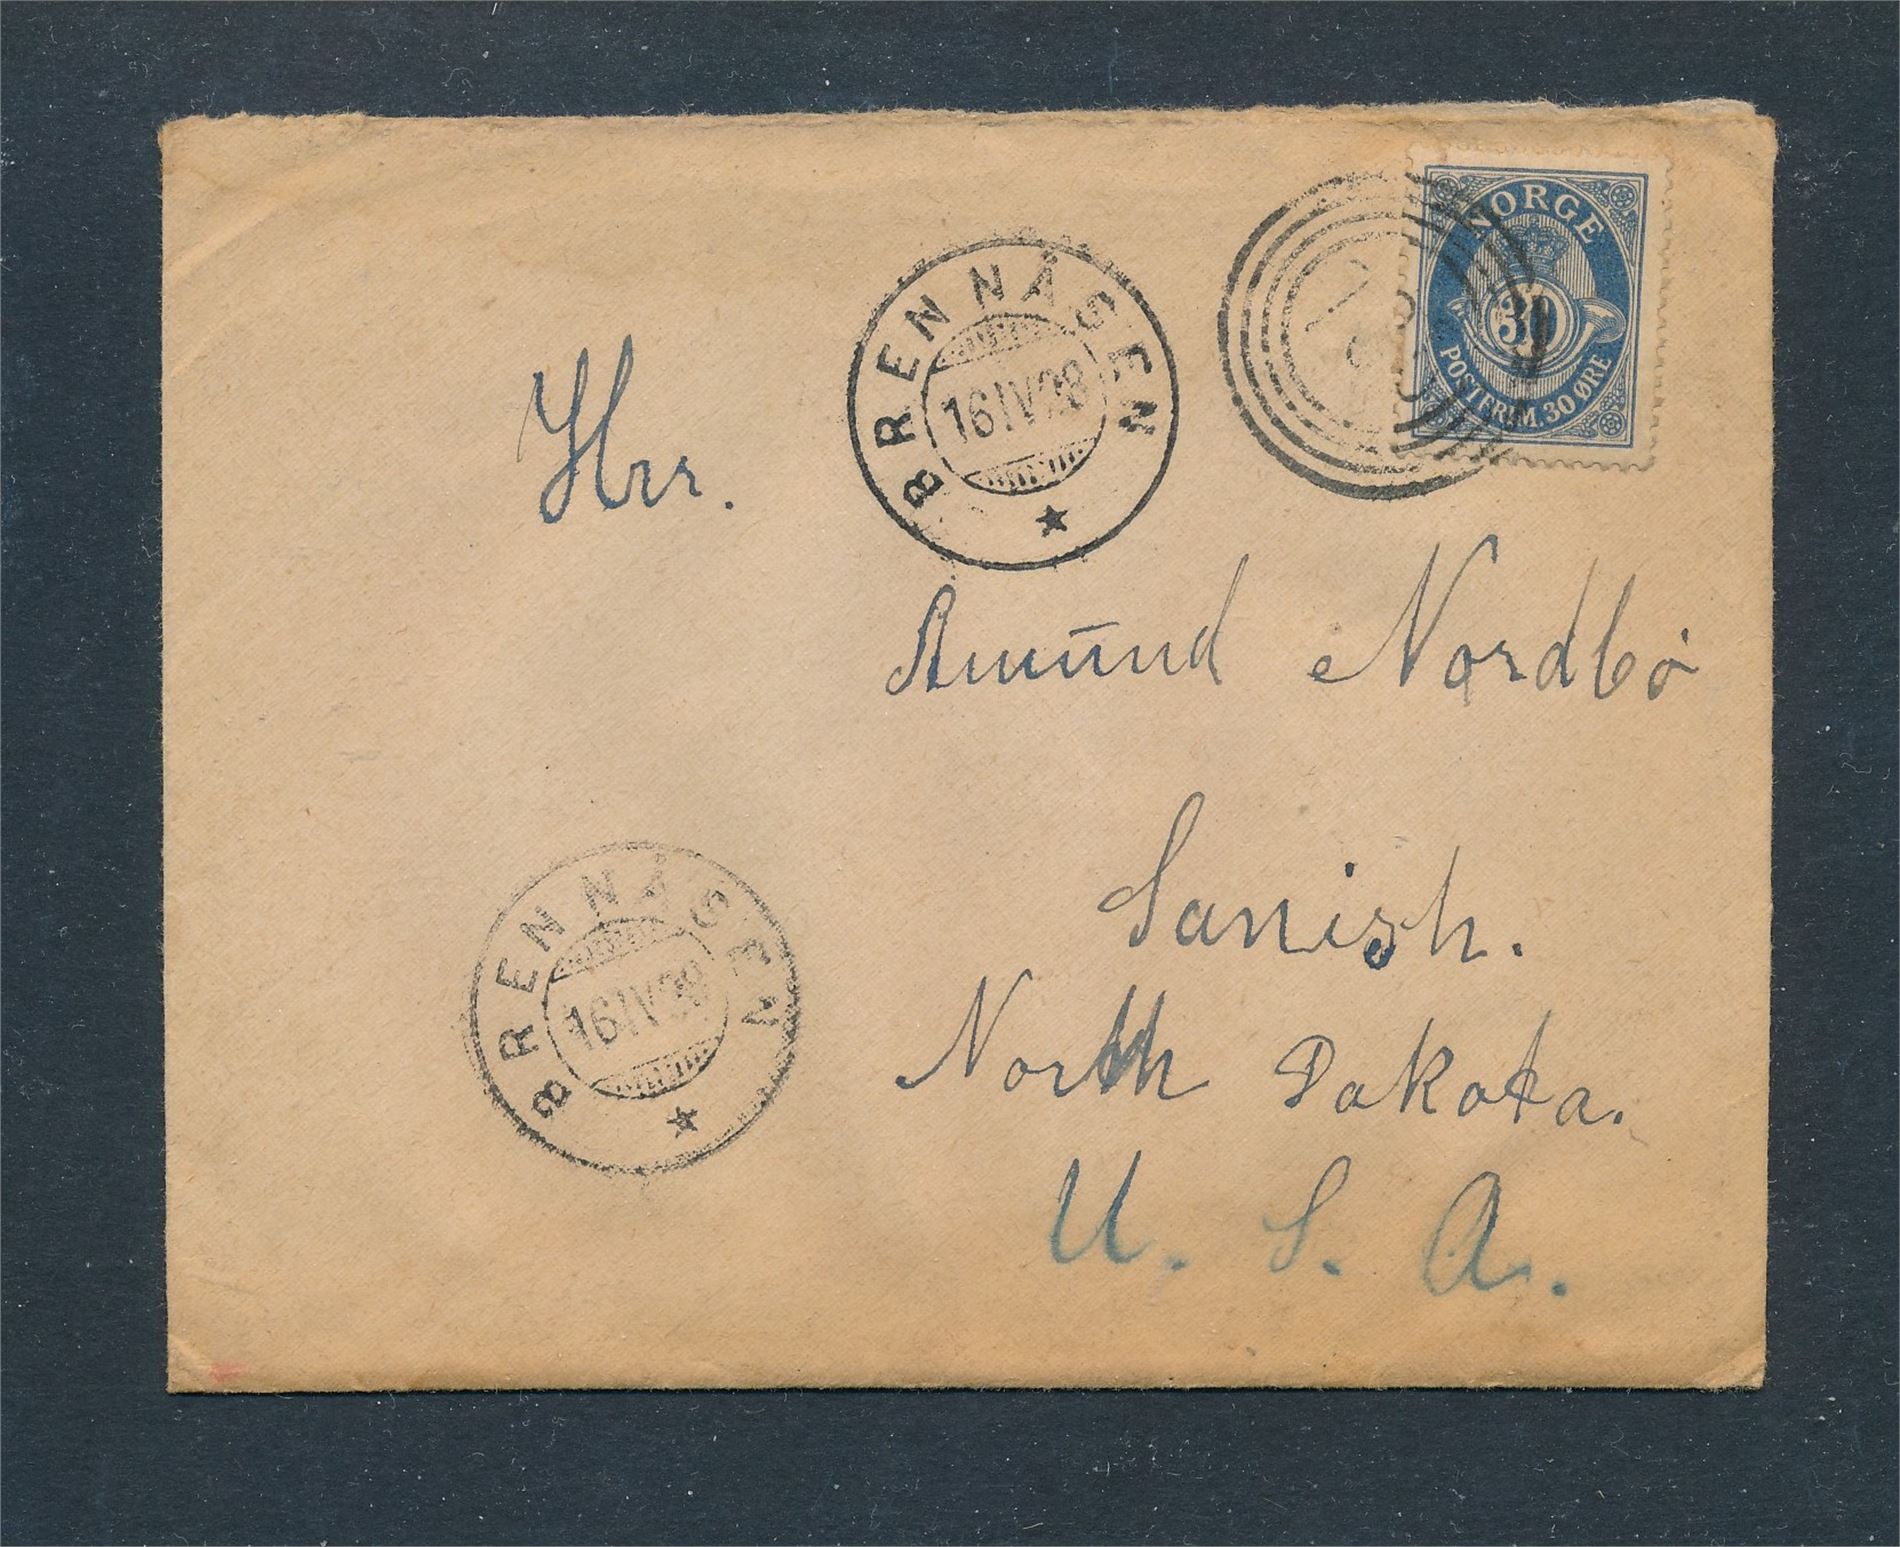 NORGE
30
POSTFRIM. 30 ØRE
BRENNÅSEN
16 IV 28
Hrr.
Amund Nordbö
Sanish.
North Dakota.
U. S. A.
BRENNÅSEN
16 IV 28